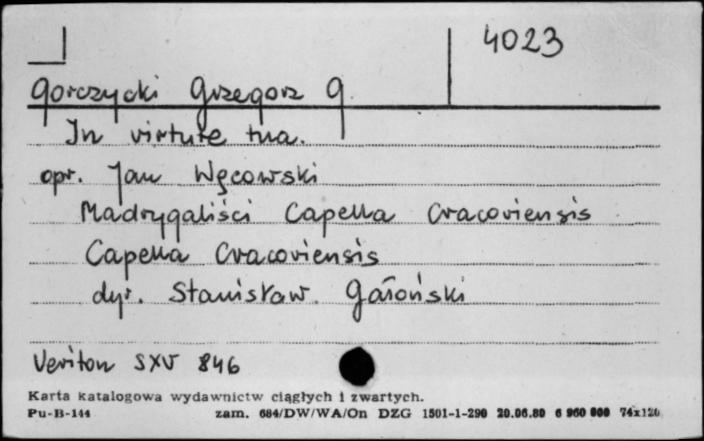 4023
Gorczycki Grzegorz G
In virtute tua.
opr. Jan Węcowski
Madrygaliści Capella Cracoviensis
Capella Cracoviensis
dyr. Stanisław Gałoński
Veriton SXV 846
Karta katalogowa wydawnictw ciągłych i zwartych.
Pu-B-144 zam. 684/DW/WA/On DZG 1501-1-290 20.06.80 6 960 000 74x120